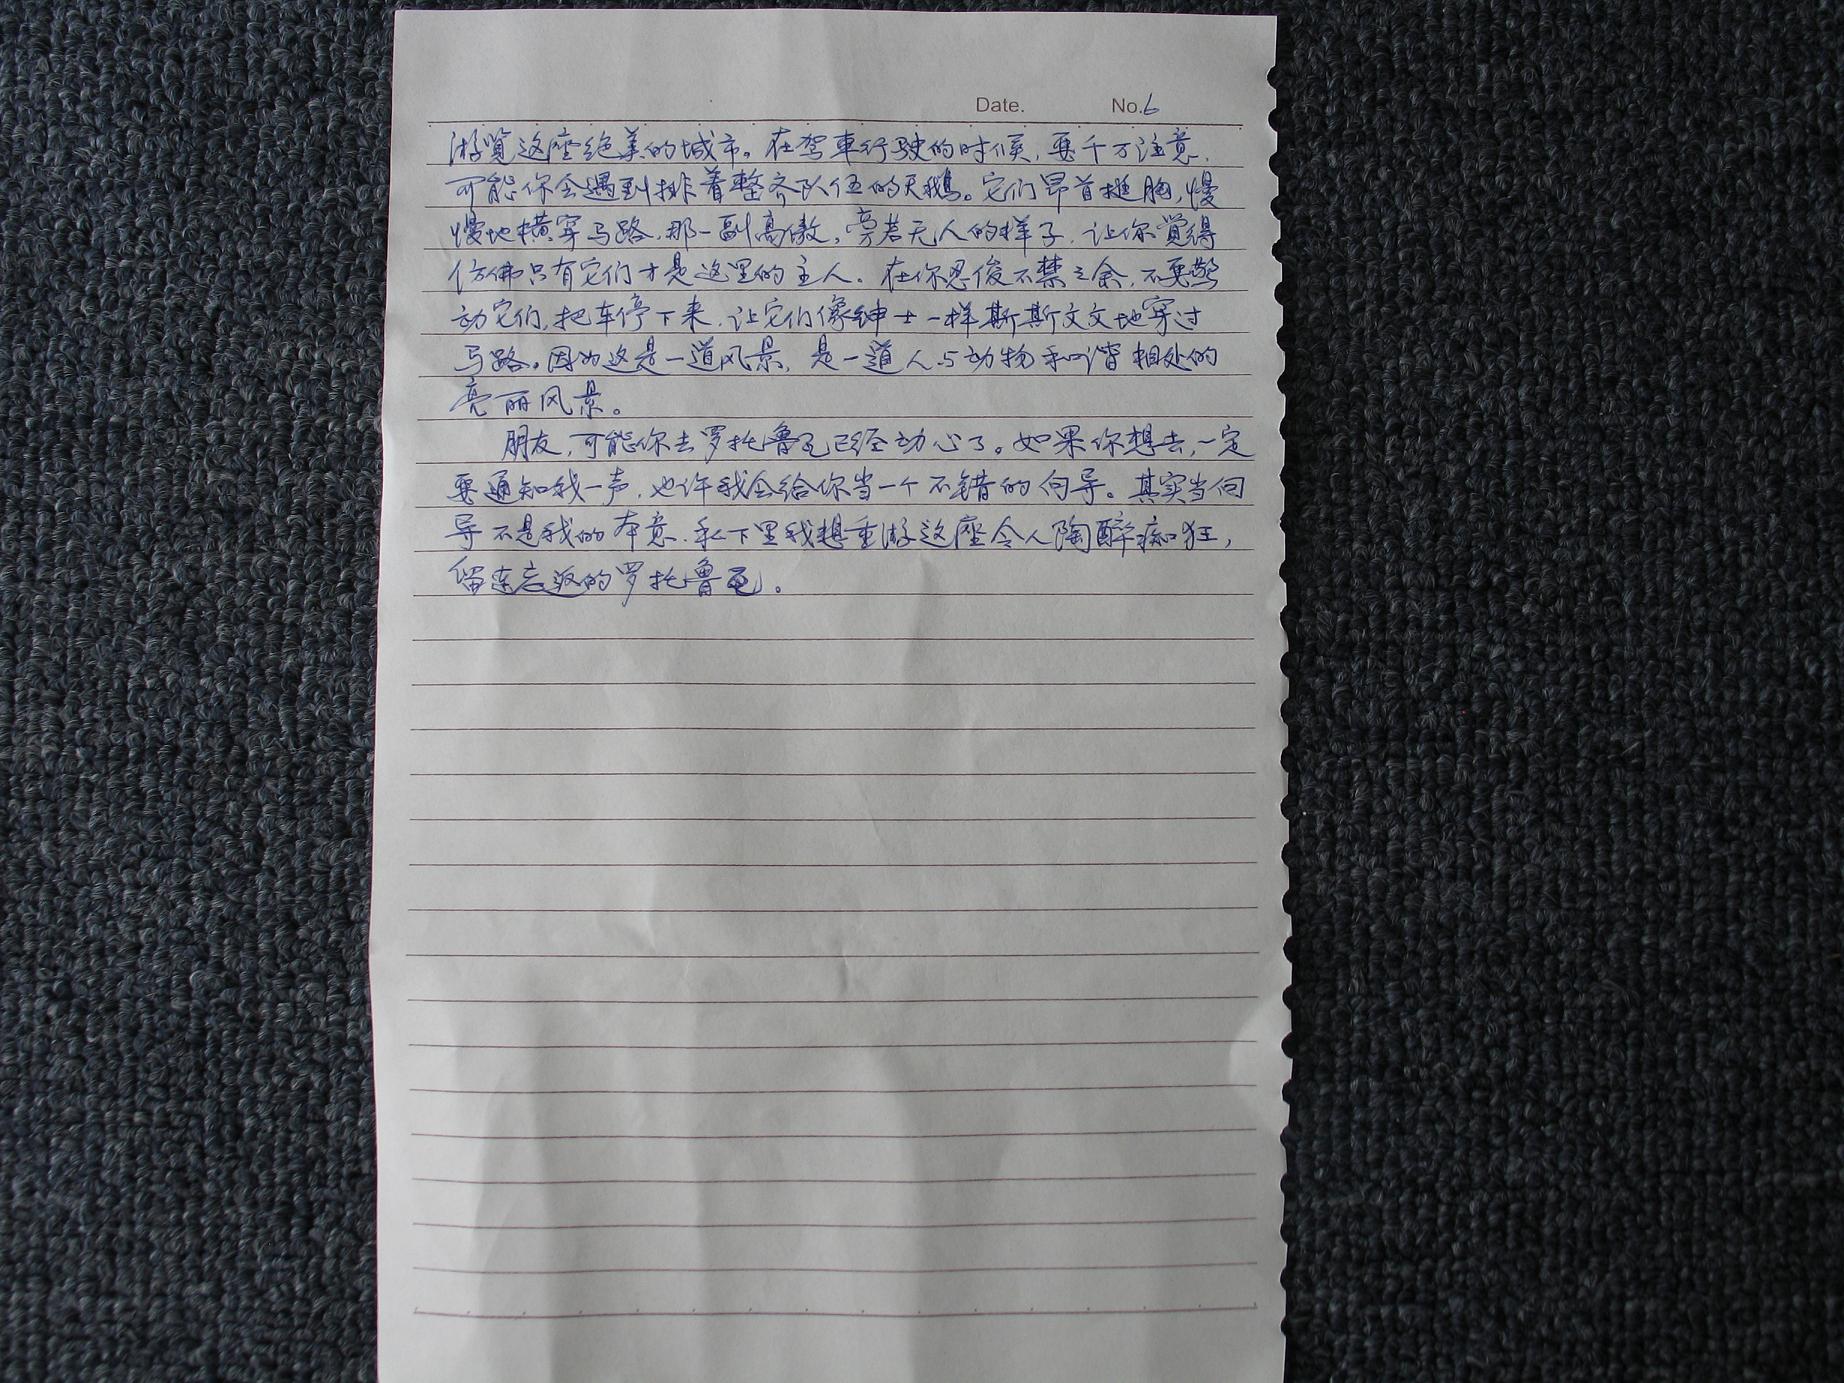 Date. No.6
游览这座绝美的城市。在驾車行驶的时候，要千万注意，
可能你会遇到排着整齐队伍的天鹅。它们昂首挺胸，慢
慢地横穿马路，那一副高傲，旁若无人的样子，让你觉得
仿佛只有它们才是这里的主人。在你忍俊不禁之余，不要惊
动它们，把车停下来，让它们像绅士一样斯斯文文地穿过
马路。因为这是一道风景，是一道人与动物和谐相处的
亮丽风景。
朋友，可能你去罗托鲁瓦已经动心了。如果你想去，一定
要通知我一声，也许我会给你当一个不错的向导。其实当向
导不是我的本意，私下里我想重游这座令人陶醉痴狂，
留连忘返的罗托鲁瓦。